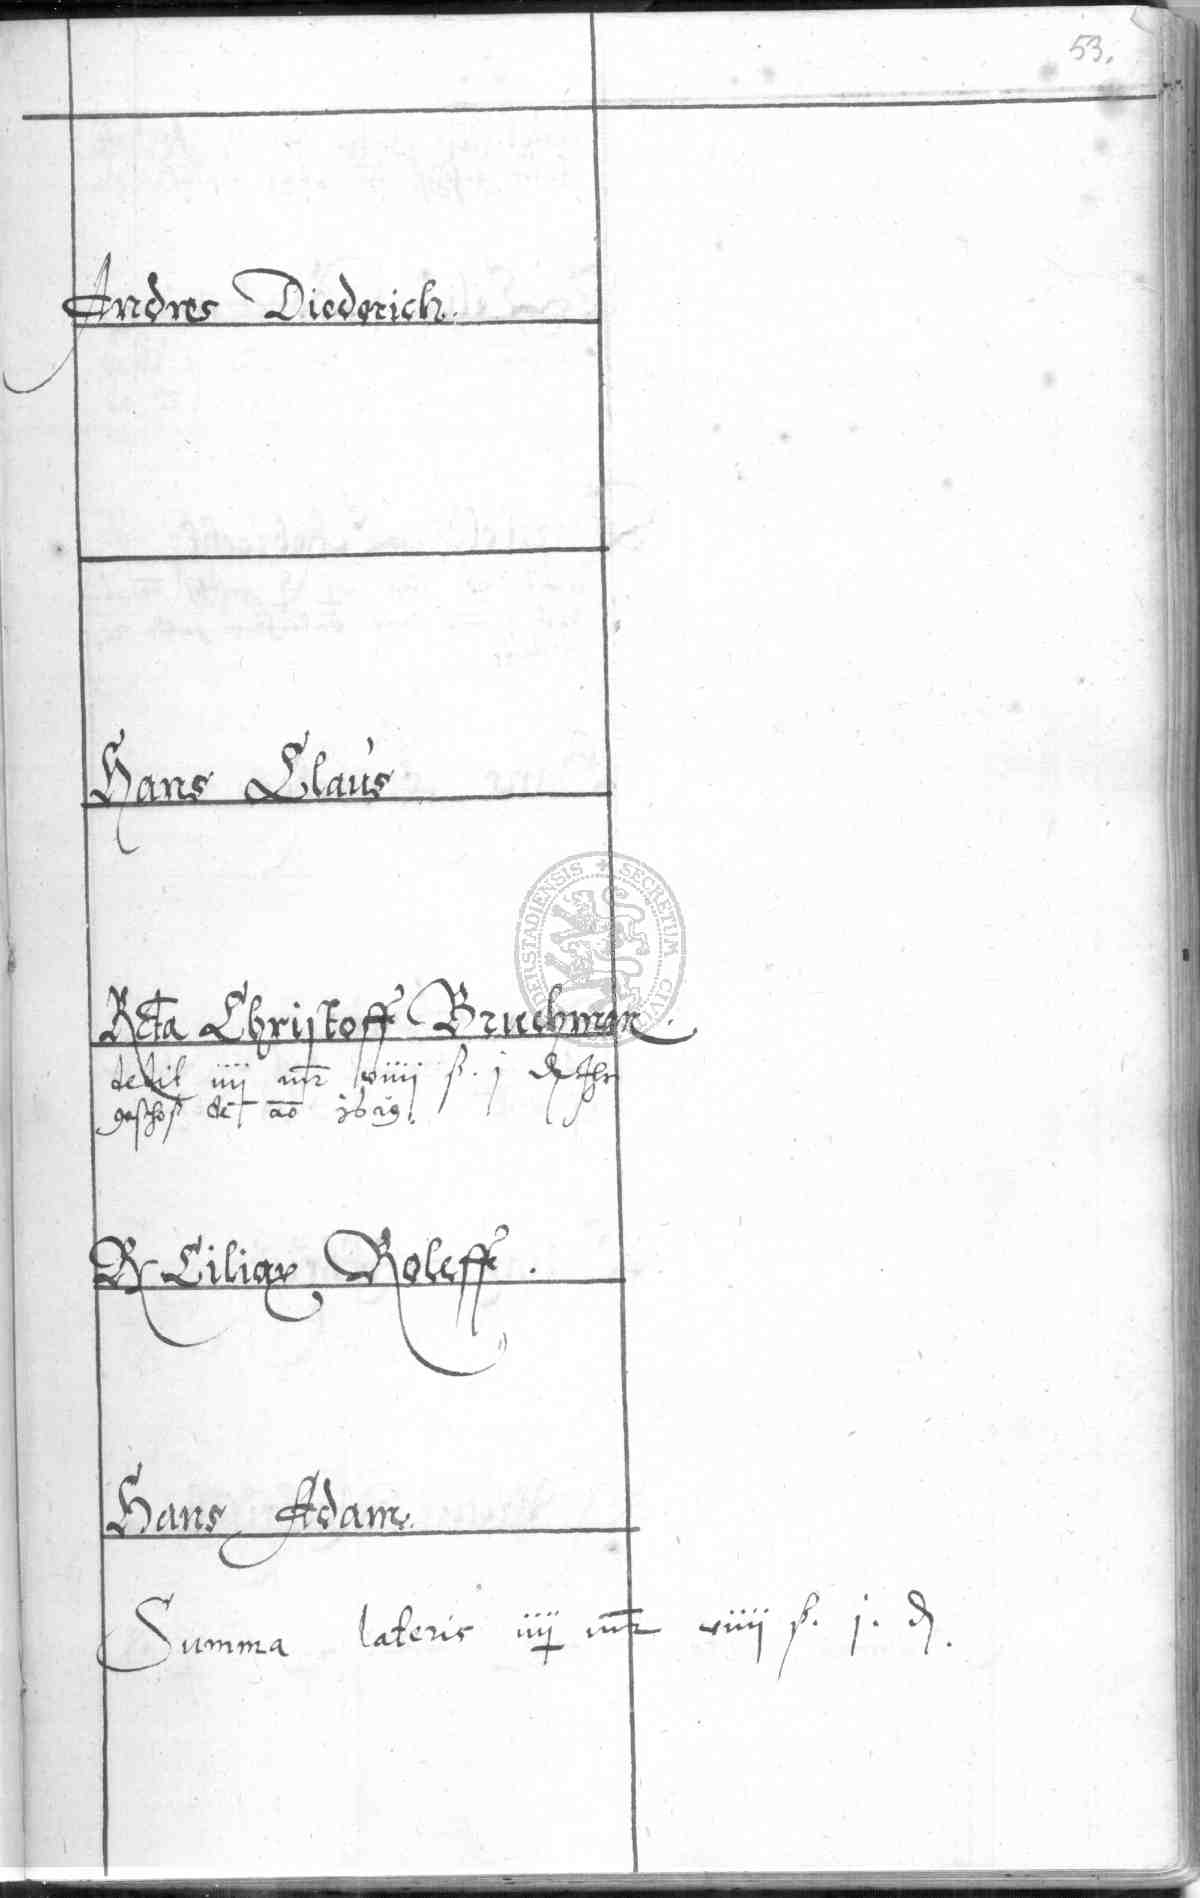 53.
Andres Diederich.
Hans Claus
Rcta Christoff Bruchman.
dedit iiij mr viiij ß. j ₰ Ihr
geschoß de ao 1619.
Ciliax Roleff.
Hans Adam.
Summa lateris iiij mr viiij ß. j. ₰.
DERSTADIENSIS + SECRETUM CIVIU